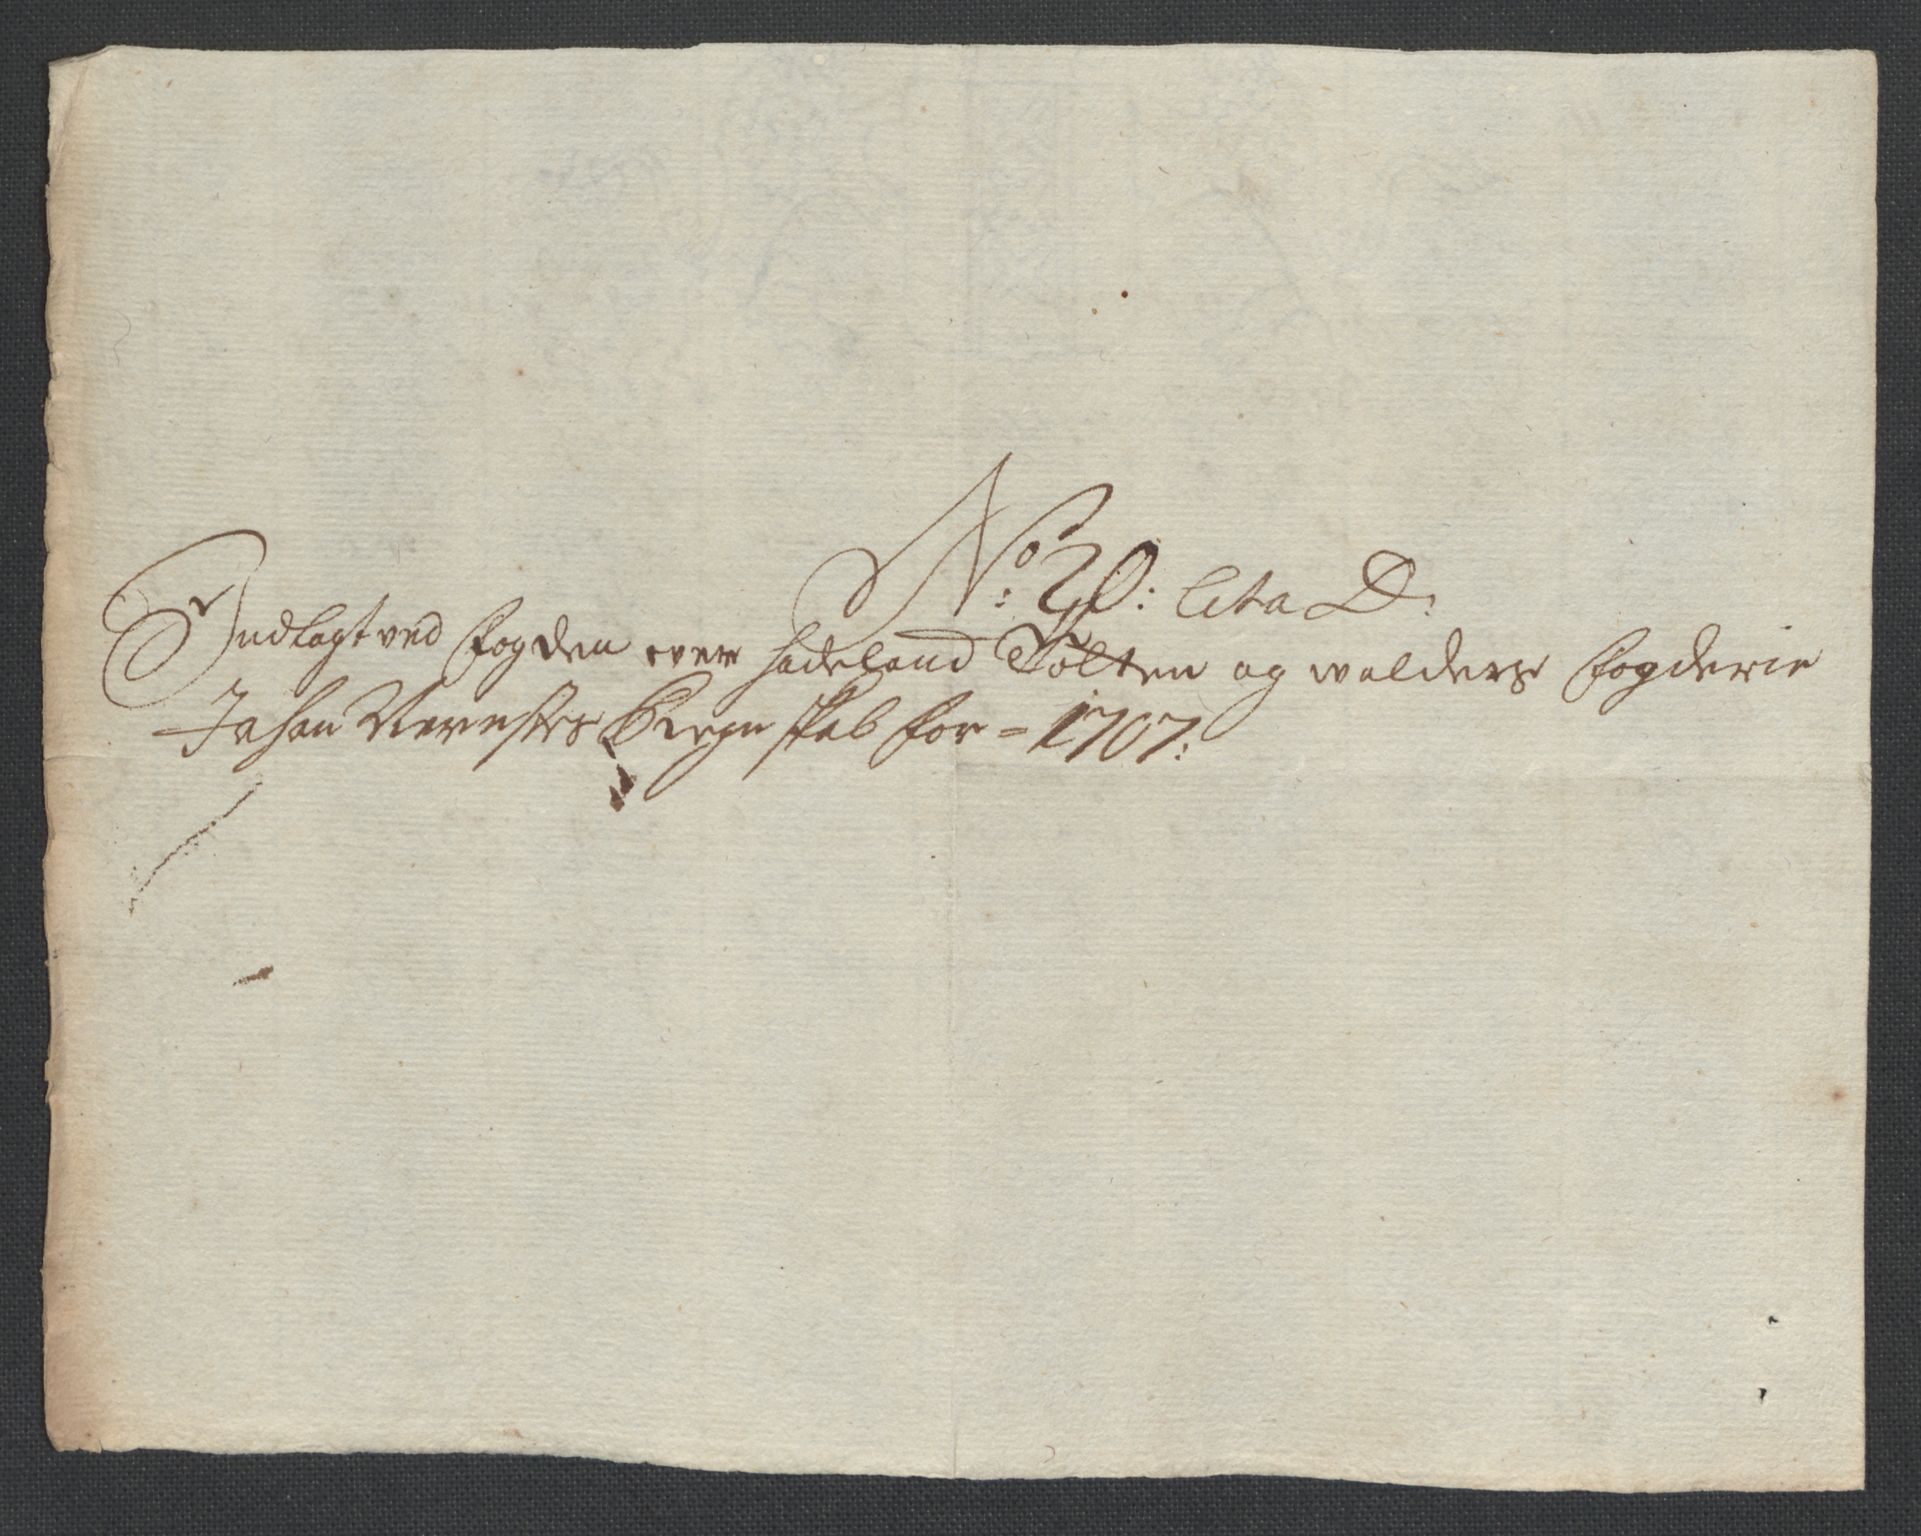 No: 20: Lita D:
Indlagt ved fogden over Hadeland Tolten og walders fogderie
Johan Reg[n]skab for = 1707: